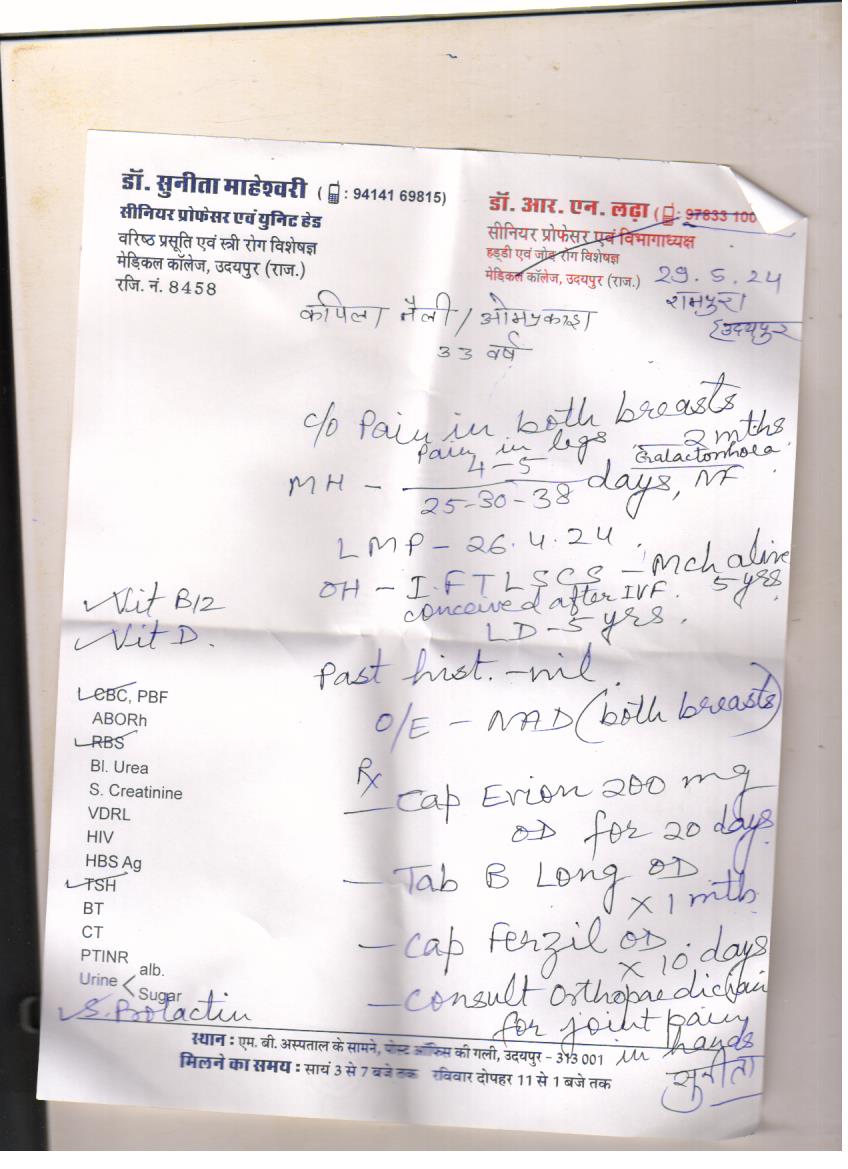 डॉ. सुनीता माहेश्वरी ( : 94141 69815)
सीनियर प्रोफेसर एवं युनिट हेड
वरिष्ठ प्रसूति एवं स्त्री रोग विशेषज्ञ
मेडिकल कॉलेज, उदयपुर (राज.)
रजि. नं. 8458
डॉ. आर. एन. लढ़ा ( : 97833 100
सीनियर प्रोफेसर एवं विभागाध्यक्ष
हड्डी एवं जोड़ रोग विशेषज्ञ
मेडिकल कॉलेज, उदयपुर (राज.)
29.5.24
रामपुरा
उदयपुर
कपिला तैली / ओमप्रकाश
33 वर्ष
c/o Pain in both breasts
Pain in legs — 2 mths
Galactorrhoea.
MH - 4-5 / 25-30-38 days, NF
LMP - 26.4.24.
OH - I. FTLSCS - Mch alive
conceived after IVF. 5 yrs
LD - 5 yrs.
Past hist. - nil.
O/E - NAD (both breasts)
Vit B12
Vit D.
CBC, PBF
ABORh
RBS
Bl. Urea
S. Creatinine
VDRL
HIV
HBS Ag
TSH
BT
CT
PTINR
Urine < alb.
Sugar
S. Prolactin
Rx
— Cap Evion 200 mg
OD for 20 days
— Tab B Long OD
x 1 mth
— Cap Ferzil OD
x 10 days
— Consult Orthopaedician
for joint pain
in hands
सुनीता
स्थान : एम. बी. अस्पताल के सामने, पोस्ट ऑफिस की गली, उदयपुर - 313 001
मिलने का समय : सायं 3 से 7 बजे तक रविवार दोपहर 11 से 1 बजे तक